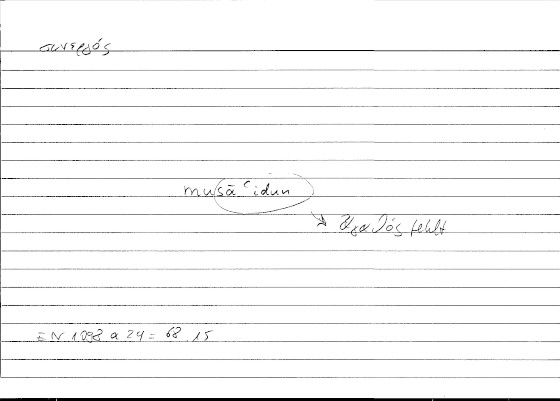 συνεργός
musāʿidun
ἀγαθός fehlt
EN 1098 a 24 = 68.15